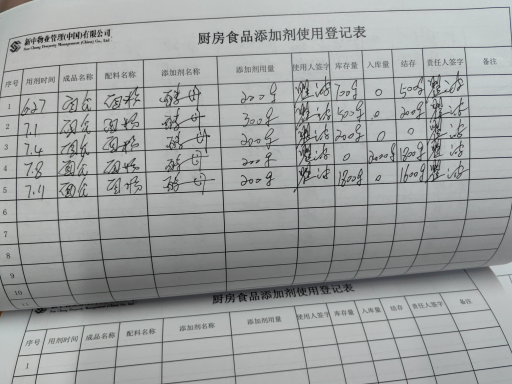 新中物业管理(中国)有限公司
Sun Chung Property Management (China) Co., Ltd.
厨房食品添加剂使用登记表
序号 用剂时间 成品名称 配料名称 添加剂名称 添加剂用量 使用人签字 库存量 入库量 结存 责任人签字 备注
1 6.27 面包 面粉 酵母 200g 700g 0 500g
2 7.1 面包 面粉 酵母 300g 500g 0 200g
3 7.4 面包 面粉 酵母 200g 200g 0 0
4 7.8 面包 面粉 酵母 200g 0 2000g 1800g
5 7.11 面包 面粉 酵母 200g 1800g 0 1600g
6
7
8
9
10
厨房食品添加剂使用登记表
序号 用剂时间 成品名称 配料名称 添加剂名称 添加剂用量 使用人签字 库存量 入库量 结存 责任人签字 备注
1